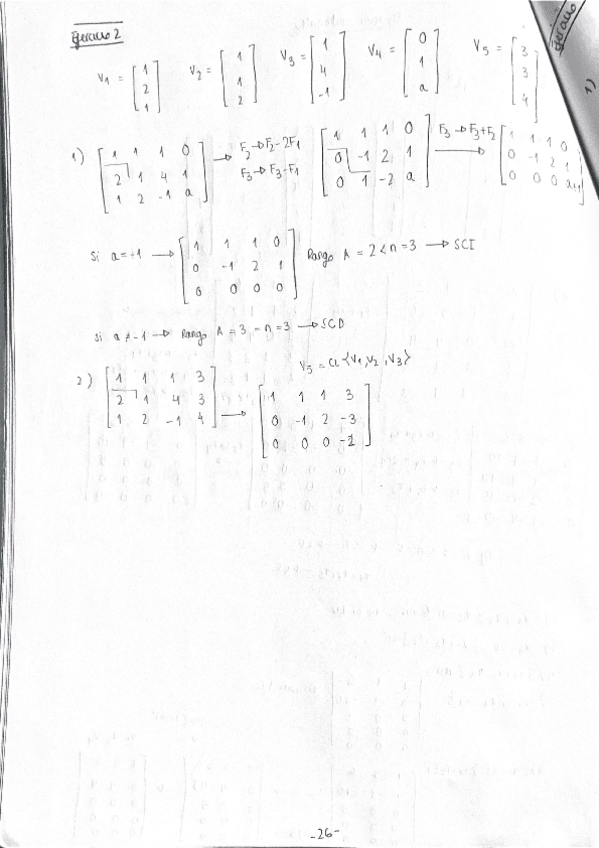 Ejercicio 2
V1 = [1 2 1] V2 = [1 1 2] V3 = [1 4 -1] V4 = [0 1 a] V5 = [3 3 4]
1) [1 1 1 0
2 1 4 1
1 2 -1 a] → F2→F2-2F1 F3→F3-F1 [1 1 1 0
0 -1 2 1
0 1 -2 a] F3→F3+F2 → [1 1 1 0
0 -1 2 1
0 0 0 a+1]
Si a=-1 → [1 1 1 0
0 -1 2 1
0 0 0 0] Rango A = 2 < n = 3 → SCI
Si a≠-1 → Rango A = 3 = n = 3 → SCD
V5 = CL {V1, V2, V3}
2) [1 1 1 3
2 1 4 3
1 2 -1 4] → [1 1 1 3
0 -1 2 -3
0 0 0 -2]
-26-
Ejercicio
1)